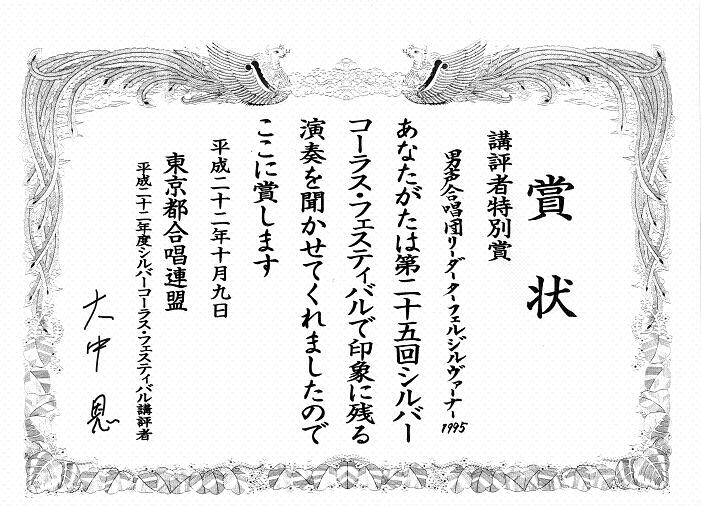 賞状
講評者特別賞
男声合唱団リーダーターフェルジルヴァーナー1995
あなたがたは第二十五回シルバー
コーラス・フェスティバルで印象に残る
演奏を聞かせてくれましたので
ここに賞します
平成二十二年十月九日
東京都合唱連盟
平成二十二年度シルバーコーラス・フェスティバル講評者
大中恩